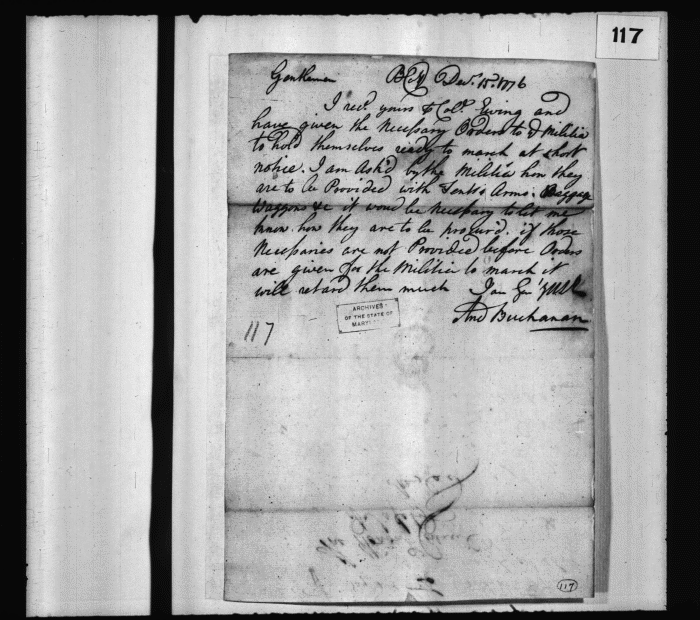 117
Gentlemen Dec.r 15th 1776
I recd. yours & Colo. Ewing and
have given the Necessary Orders to ye Militia
to hold themselves ready to march at short
notice. I am Ask'd by the Militia how they
are to be Provided with Tents Arms. Baggage
Waggons &c it woud be Necessary to let me
know how they are to be procur'd. if those
Necessaries are not Provided before Orders
are given for the Militia to march it
will retard them much I am Gen
And Buchanan
ARCHIVES
OF THE STATE OF
MARYLAND
117
117